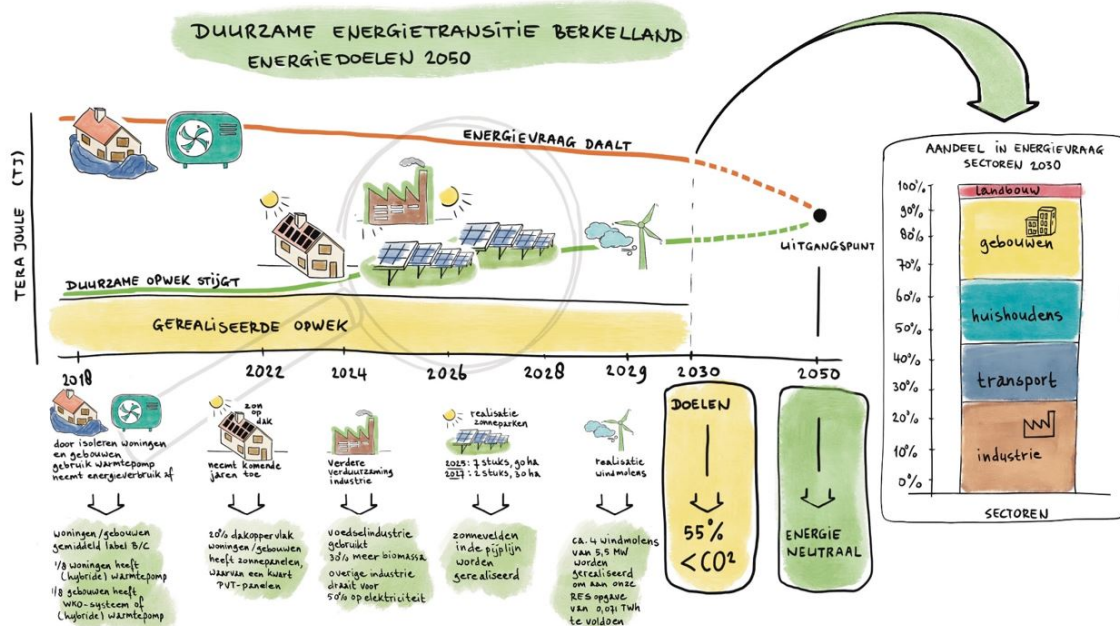 DUURZAME ENERGIETRANSITIE BERKELLAND
ENERGIEDOELEN 2050
TERA JOULE (TJ)
ENERGIEVRAAG DAALT
DUURZAME OPWEK STIJGT
GEREALISEERDE OPWEK
UITGANGSPUNT
2018
2022
2024
2026
2028
2029
2030
2050
door isoleren woningen
en gebouwen
gebruik warmtepomp
neemt energieverbruik af
woningen/gebouwen
gemiddeld label B/C
1/8 woningen heeft
(hybride) warmtepomp
1/8 gebouwen heeft
WKO-systeem of
(hybride) warmtepomp
zon
op
dak
neemt komende
jaren toe
20% dakoppervlak
woningen/gebouwen
heeft zonnepanelen,
waarvan een kwart
PVT-panelen
verdere
verduurzaming
industrie
voedselindustrie
gebruikt
30% meer biomassa
overige industrie
draait voor
50% op elektriciteit
realisatie
zonneparken
2025: 7 stuks, 90 ha
2027: 2 stuks, 30 ha
zonnevelden
in de pijplijn
worden
gerealiseerd
realisatie
windmolens
ca. 4 windmolens
van 5,5 MW
worden
gerealiseerd
om aan onze
RES opgave
van 0,071 TWh
te voldoen
DOELEN
55%
<CO²
ENERGIE
NEUTRAAL
AANDEEL IN ENERGIEVRAAG
SECTOREN 2030
100%
90%
80%
70%
60%
50%
40%
30%
20%
10%
0%
landbouw
gebouwen
huishoudens
transport
industrie
SECTOREN